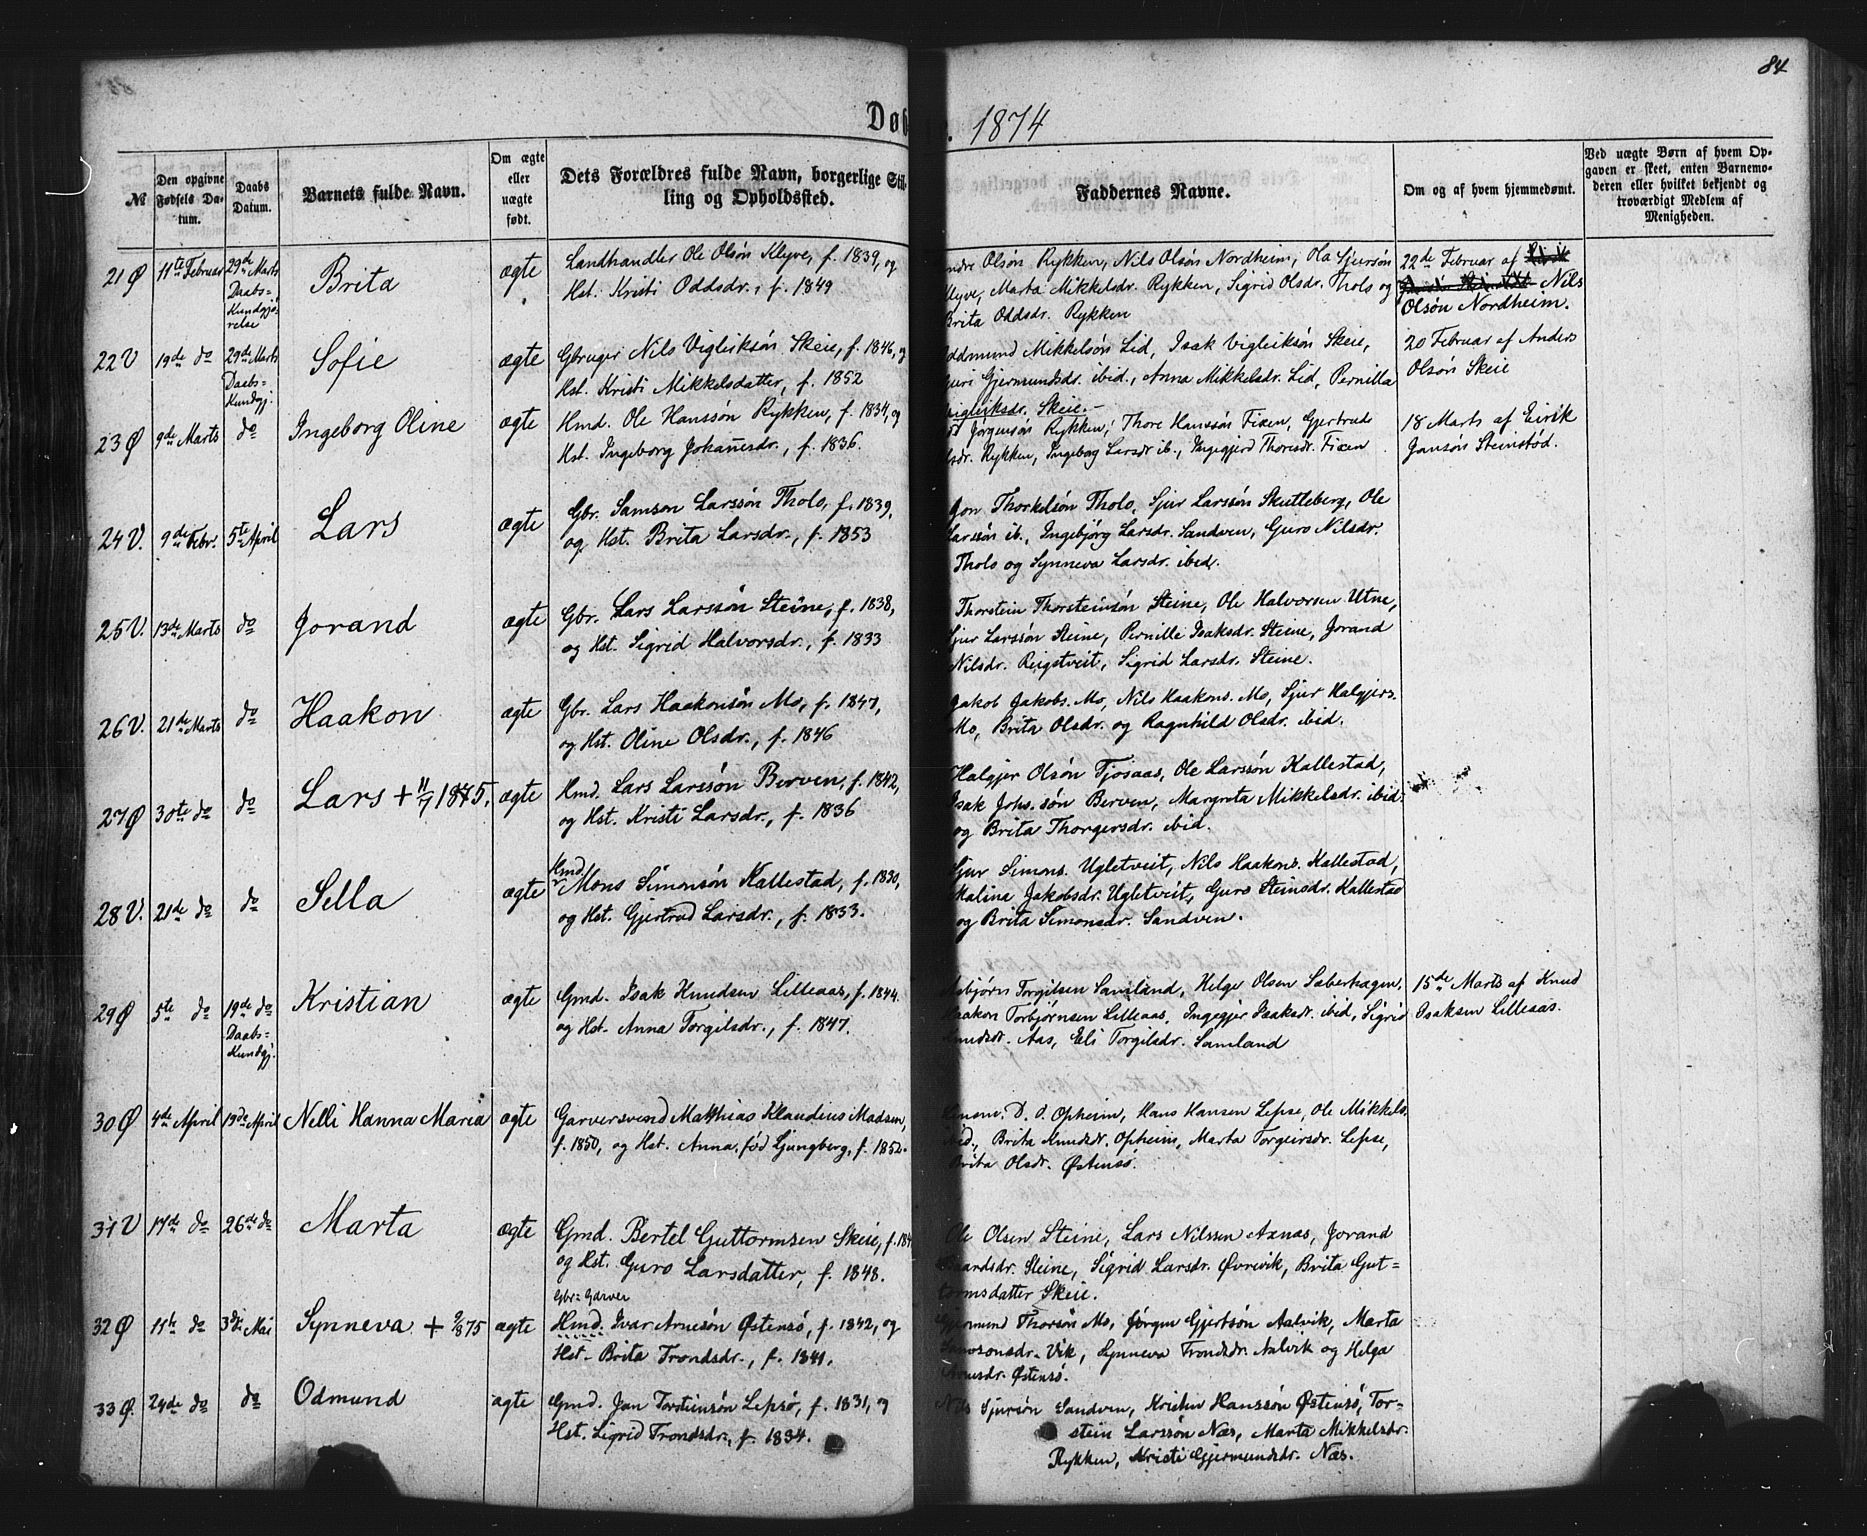 84
Døb
1874
№
Den opgivne Fødsels Datum.
Daabs Datum.
Barnets fulde Navn.
Om ægte eller uægte født.
Dets Forældres fulde Navn, borgerlige Stilling og Opholdssted.
Faddernes Navne.
Om og af hvem hjemmedøbt.
Ved uægte Børn af hvem Opgaven er skeet, enten Barnemoderen eller hvilket bekjendt og troværdigt Medlem af Menigheden.
21 Ø
11te Februar
29de Marts
Daabs-
Kundgjø-
relse
Brita
ægte
Landhandler Ole Olsøn Klyve, f. 1839, og
Hst. Kristi Oddsdr., f. 1849
Olsøn Rykken, Nils Olsøn Nordheim, Ola Sjursøn
Klyve, Marta Mikkelsdr. Rykken, Sigrid Olsdr. Tholo og
Brita Oddsdr. Rykken
22de Februar af
Nils
Olsøn Nordheim.
22 V
19de do
29de Marts
Daabs-
Kundgj.
Sofie
ægte
Gbruger Nils Vigleiksøn Skeie, f. 1846, og
Hst. Kristi Mikkelsdatter, f. 1852
Oddmund Mikkelsøn Lid, Isak Vigleiksøn Skeie,
Guri Gjermundsdr. ibid., Anna Mikkelsdr. Lid, Pernilla
Vigleiksdr. Skeie.-
20 Februar af Anders
Olsøn Skeie
23 Ø
9de Marts
do
Ingeborg Oline
ægte
Hmd. Ole Hanssøn Rykken, f. 1834, og
Hst. Ingeborg Johannesdr., f. 1836.
Jørgensøn Rykken, Thore Hanssøn Fixen, Gjertrude
Rykken, Ingeborg Larsdr ib., Ingegjerd Thoresdr. Fixen
18 Marts af Eirik
Jansøn Steinstød.
24 V.
9de Febr.
5te April
Lars
ægte
Gbr. Samson Larssøn Tholo, f. 1839,
og Hst. Brita Larsdr., f. 1853
Jon Thorkelsøn Tholo, Sjur Larssøn Skutleberg, Ole
Larssøn ib., Ingebjørg Larsdr. Sandven, Guro Nilsdr.
Tholo og Synneva Larsdr. ibid.
25 V.
13de Marts
do
Jorand
ægte
Gbr. Lars Larssøn Steine, f. 1838,
og Hst. Sigrid Halvorsdr., f. 1833
Thorstein Thorsteinsøn Steine, Ole Halvorsen Utne,
Sjur Larssøn Steine, Pernille Isaksdr. Steine, Jorand
Nilsdr. Reigstveit, Sigrid Larsdr. Steine.
26 V.
21de Marts
do
Haakon
ægte
Gbr. Lars Haakonsøn Mo, f. 1847,
og Hst. Oline Olsdr., f. 1846
Jakob Jakobs. Mo, Nils Haakons. Mo, Sjur Halgjers.
Mo, Brita Olsdr. og Ragnhild Olsdr. ibid.
27 Ø
30te do
do
Lars + 11/7 1875.
ægte
Hmd. Lars Larssøn Berven, f. 1842,
og Hst. Kristi Larsdr., f. 1836
Halgjer Olsøn Tjosaas, Ole Larssøn Kallestad,
Isak Johs.søn Berven, Margreta Mikkelsdr. ibid.
og Brita Thorgersdr. ibid.
28 V.
21de do
do
Sella
ægte
Hmd.
Mons Simonsøn Kallestad, f. 1830,
og Hst. Gjertrud Larsdr., f. 1833.
Sjur Simons. Ugletveit, Nils Haakons. Kallestad,
Malina Jakobsdr. Ugletveit, Guro Steinsdr. Kallestad
og Brita Simonsdr. Sandven.
29 Ø
5te do
19de do
Daabs-
Kundgj.
Kristian
ægte
Gmd. Isak Knudsen Lilleaas, f. 1844
og Hst. Anna Torgilsdr., f. 1847.
Asbjørn Torgilsen Samland, Helge Olsen Sæberhagen,
Haakon Torbjørnsen Lilleaas, Ingegjer Isaksdr. ibid, Sigrid
Knudsdr. Aas, Eli Torgilsdr. Samland
15de Marts af Knud
Isaksen Lilleaas.
30 Ø
4de April
19de April
Nelli Hanna Maria
ægte
Garversvend Matthias Klaudius Madsen,
f. 1850, og Hst. Anna, fød Ljungberg, f. 1852.
D. O. Opheim, Hans Hansen Lepse, Ole Mikkels.
ibid., Brita Knudsdr. Opheim, Marta Torgeirsdr. Lepse,
Brita Olsdr. Østensø.
31 V
17de do
26de do
Marta
ægte
Gmd. Bertel Guttormsen Skeie, f. 184
og Hst. Guro Larsdatter, f. 1848.
Ole Olsen Steine, Lars Nilssen Axnas, Jorand
Steine, Sigrid Larsdr. Øvrevik, Brita Gut-
tormsdatter Skeie.
32 Ø
11te do
3die Mai
Synneva + 9/8 75
ægte
Gbr. Garver
Hmd. Ivar Arnesøn Østensø, f. 1842, og
Hst. Brita Trondsdr., f. 1841.
Gjermund Thorsøn Mo, Jørgen Gjertsøn Aalvik, Marta
Samsonsdr. Vik, Synneva Trondsdr. Aalvik og Helga
Arnesdr. Østensø.
33 Ø.
24de do
do
Odmund
ægte
Gmd. Jan Torsteinsøn Lepsø, f. 1831, og
Hst. Sigrid Trondsdr., f. 1834.
Nils Sjursøn Sandven, Kristen Hanssøn Østensø, Tor-
stein Larssøn Næs, Marta Mikkelsdr.
Rykken, Kristi Gjermundsdr. Næs.